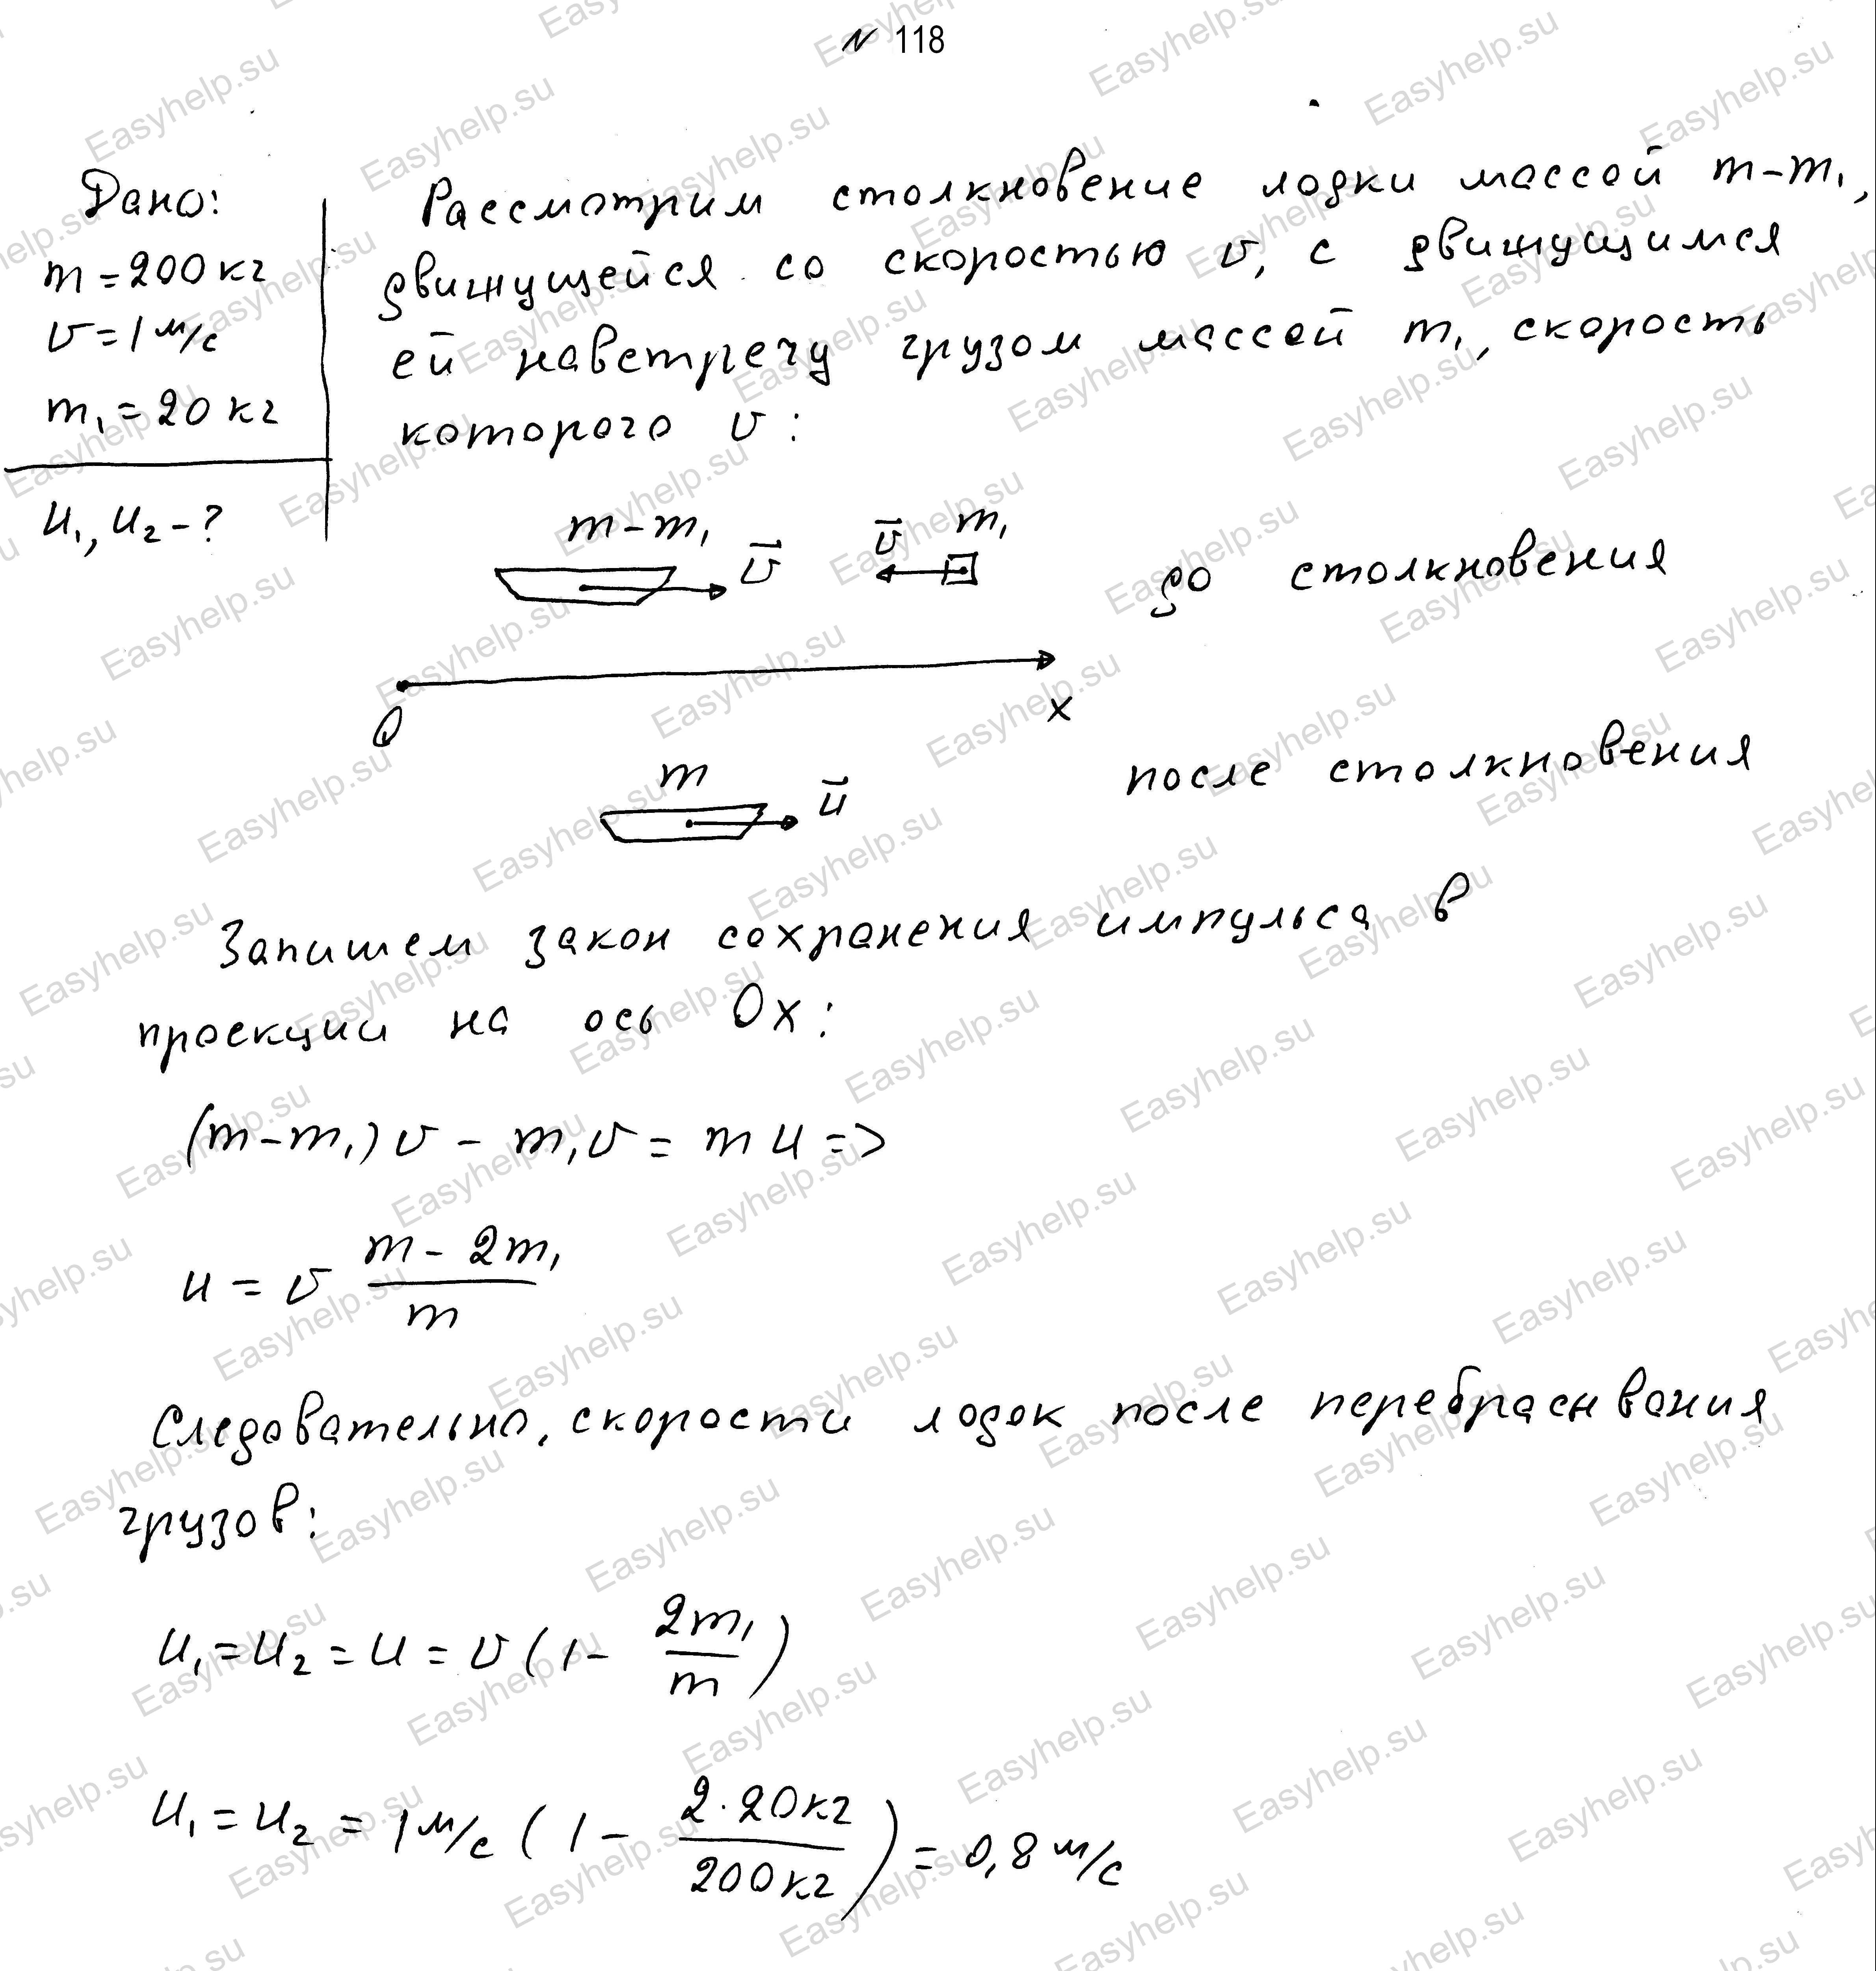 N 118
Дано:
m = 200 кг
v = 1 м/с
m₁ = 20 кг
u₁, u₂ - ?
Рассмотрим столкновение лодки массой m-m₁,
движущейся со скоростью v, с движущимся
ей навстречу грузом массой m₁, скорость
которого v:
m-m₁ v̄ v̄ m₁ до столкновения
O x
m ū после столкновения
Запишем закон сохранения импульса в
проекции на ось Ox:
(m-m₁)v - m₁v = mu =>
u = v (m - 2m₁)/m
Следовательно, скорости лодок после перебрасывания
грузов:
u₁ = u₂ = u = v(1 - 2m₁/m)
u₁ = u₂ = 1 м/с (1 - 2·20кг/200кг) = 0,8 м/с
Easyhelp.su